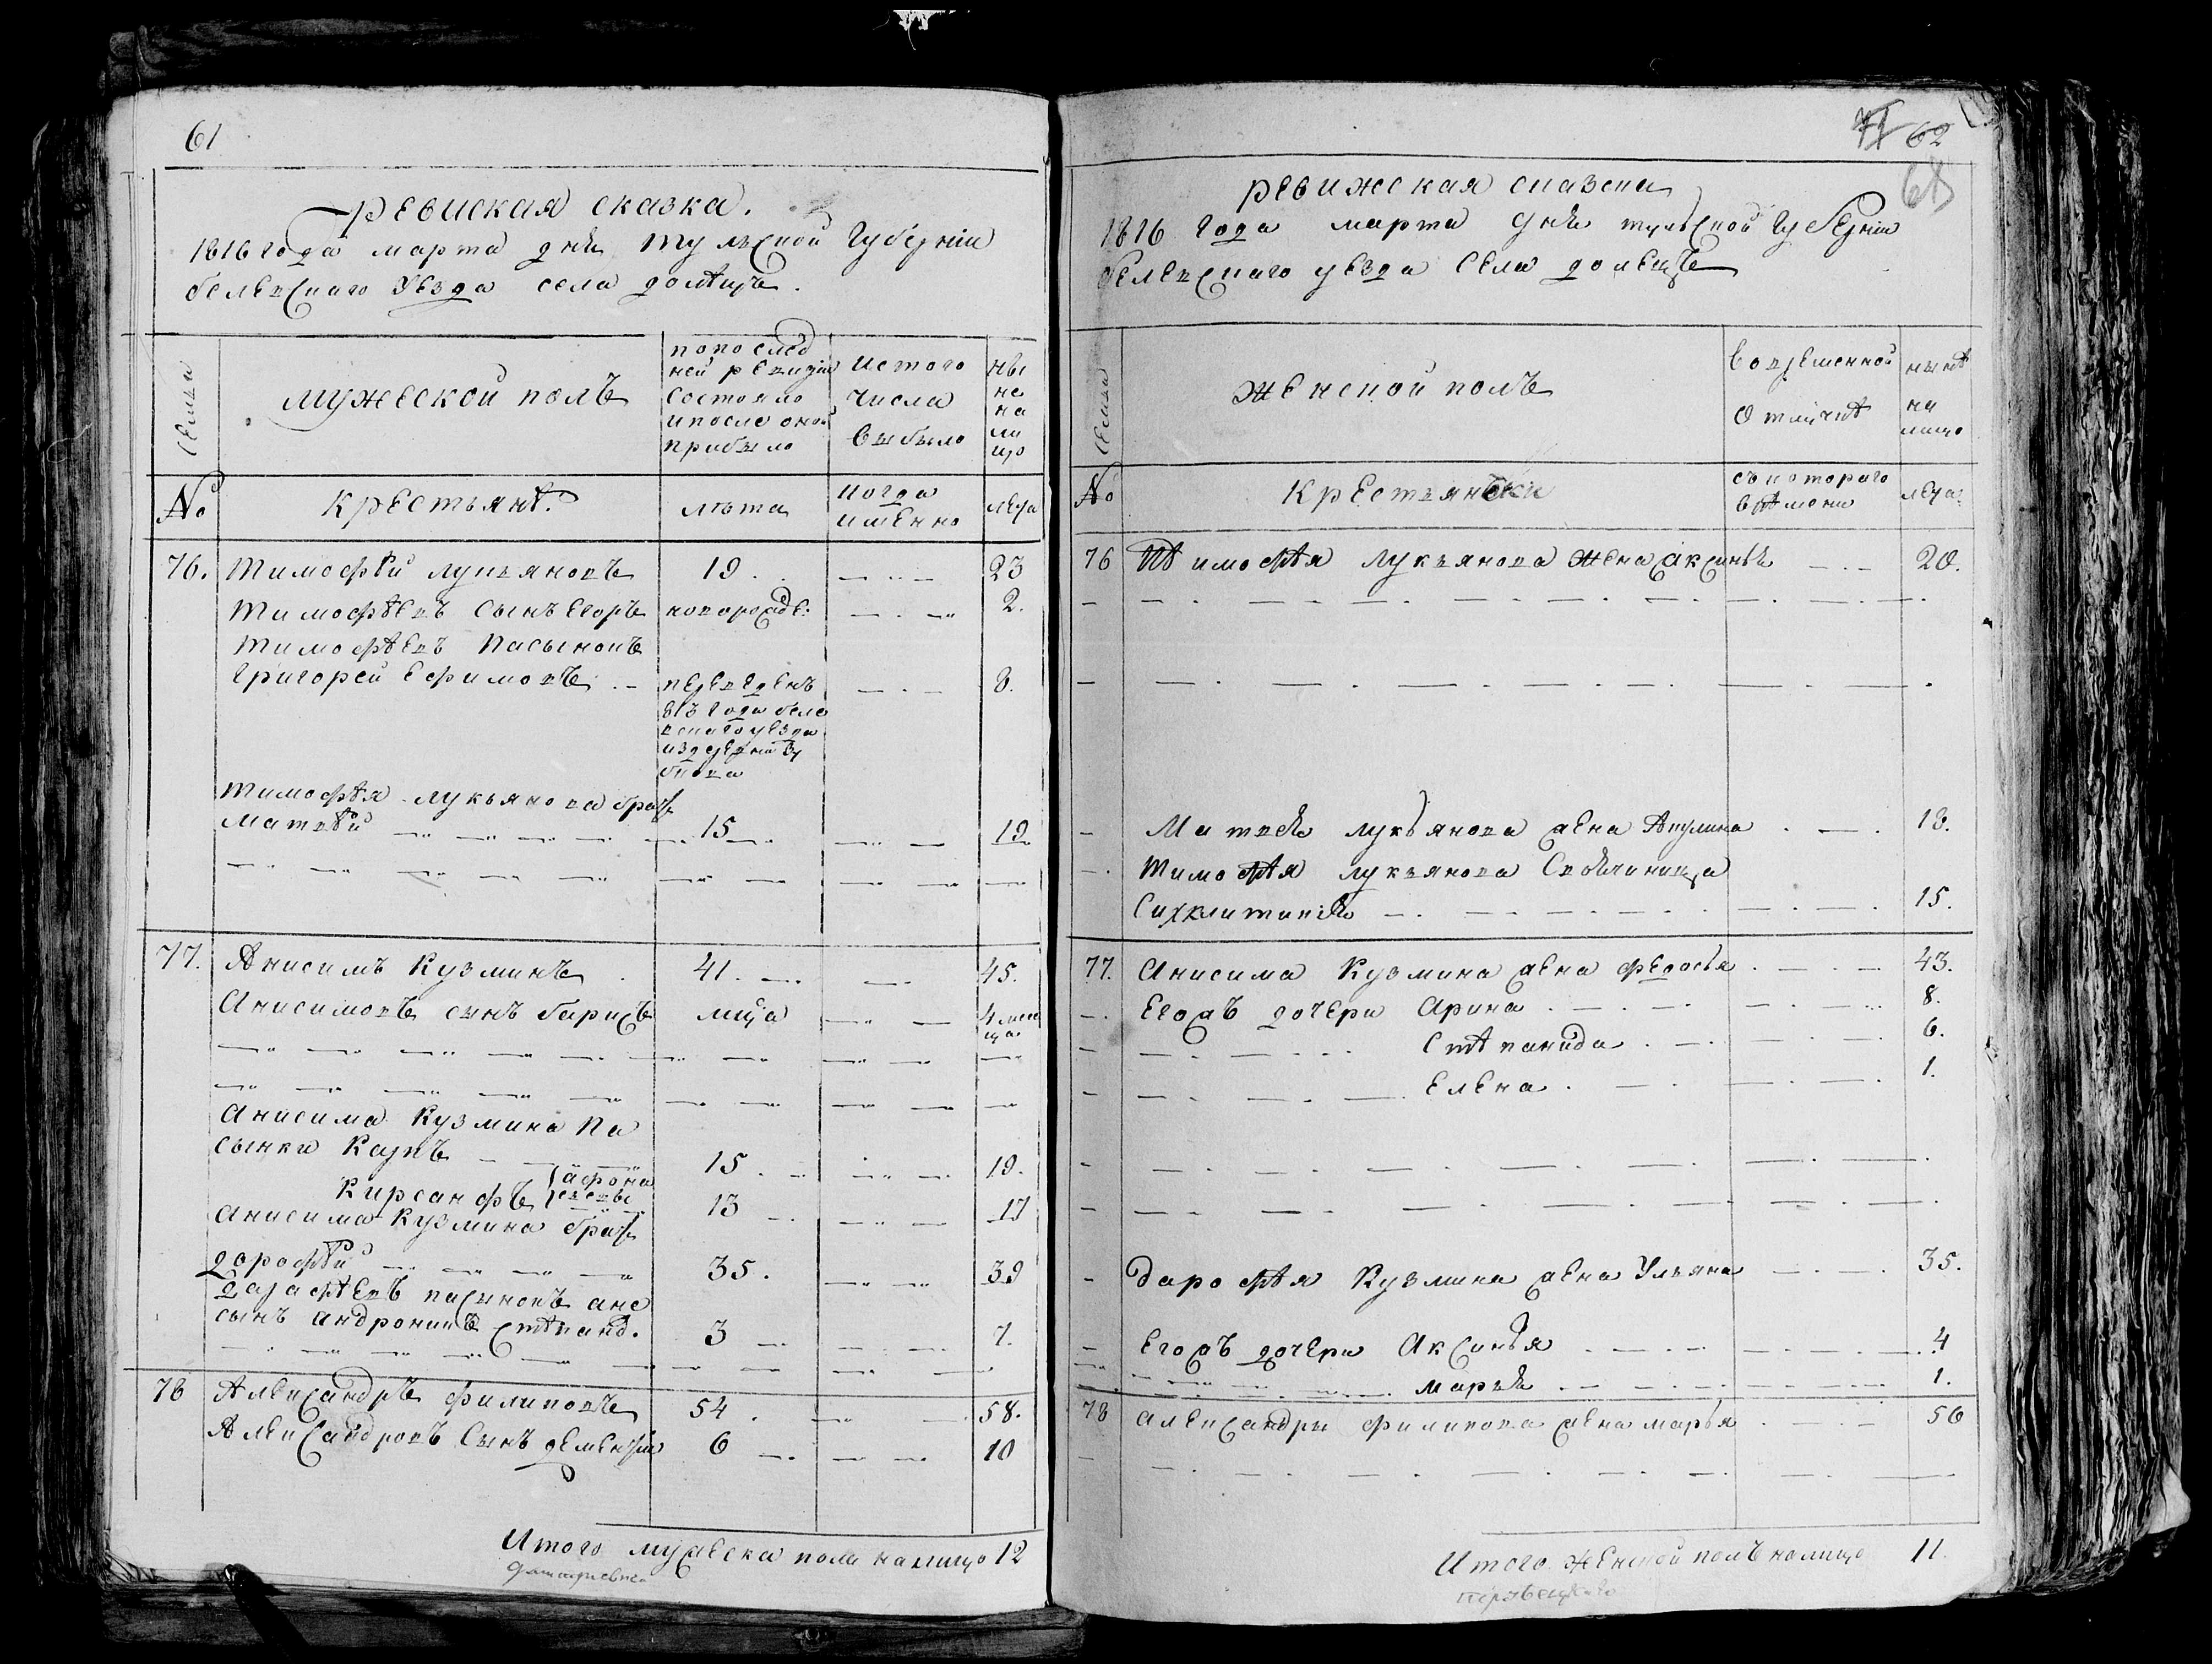 61
ревиская сказка.
1816 года марта дня тульской губернии
белевскаго уезда села долѣцъ.
семьи
мужеской полъ
попослед
ней ревизіи
состояло
ипосле оной
прибыло
истого
числа
выбыло
ны
не
на
ли
цо
№
крестьянѣ.
лѣта
когда
имѣнно
лета
76. Тимофѣй лукьяновъ 19. 23
тимофѣевъ сынъ егоръ новорожде: 2.
тимофѣевъ пасынокъ
григорей ефимовъ. переведенъ 8.
813 года беле
вскаго уезда
издеревни зу
бкова
тимофѣя лукьянова братъ
матвѣй 15 19
77. Анисимъ кузминъ 41. 45.
Анисимовъ сынъ барисъ мца 4 меся
ца
Анисима кузмина па
сынки карпъ 15. 19.
кирсанфъ афона
севы 13 17
анисима кузмина братъ
дорофѣй 35. 39
дарафѣевъ пасынокъ ане
сынъ андроникъ степанд. 3 7.
78 Александръ филиповъ 54. 58.
Александровъ сынъ дементий 6 10
Итого мужеска пола налицо 12
71 62
68
ревижская сказка
1816 года марта дня тульской губернии
белевскаго уезда села долецъ
семьи
женской полъ
вовременной
отлучкѣ
нынѣ
на
лицо
№
крестьянски
съкотораго
врѣмени
лета:
76 Тимофѣя лукьянова жена аксинья 20.
Матвея лукьянова жена Акулина 18.
тимофѣя лукьянова свояченица
Сихклитикия 15.
77. Анисима кузмина жена федосья 43.
Егожъ дочери арина 8.
степанида 6.
елена 1.
дарофѣя кузмина жена ульяна 35.
егожъ дочери аксинья 4
марья 1.
78 александры филипова жена марья 56
Итого женской полъ налицо 11.